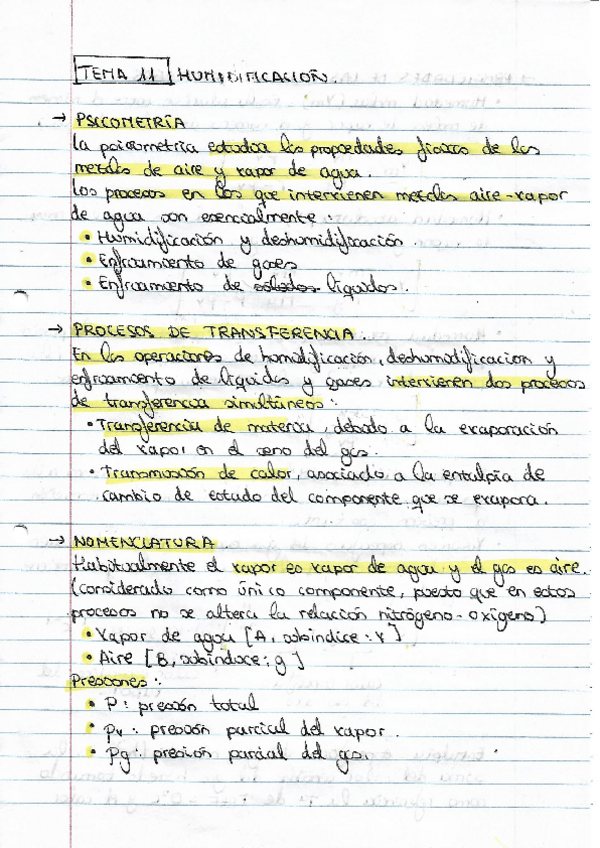 TEMA 11 HUMIDIFICACIÓN.
→ PSICOMETRÍA
La psicometría estudia las propiedades físicas de las
mezclas de aire y vapor de agua.
Los procesos en los que intervienen mezclas aire-vapor
de agua son esencialmente:
• Humidificación y deshumidificación.
• Enfriamiento de gases
• Enfriamiento de sólidos líquidos.
→ PROCESOS DE TRANSFERENCIA:
En las operaciones de humidificación, deshumidificacion y
enfriamiento de líquidos y gases intervienen dos procesos
de transferencia simultáneos:
• Transferencia de materia, debido a la evaporación
del vapor en el seno del gas.
• Transmisión de calor, asociado a la entalpía de
cambio de estado del componente que se evapora.
→ NOMENCLATURA
Habitualmente el vapor es vapor de agua y el gas es aire.
(considerado como único componente, puesto que en estos
procesos no se altera la relación nitrógeno-oxígeno)
• Vapor de agua [A, subíndice: v]
• Aire [B, subíndice: g]
Presiones:
• P: presión total
• Pv: presión parcial del vapor.
• Pg: presión parcial del gas.